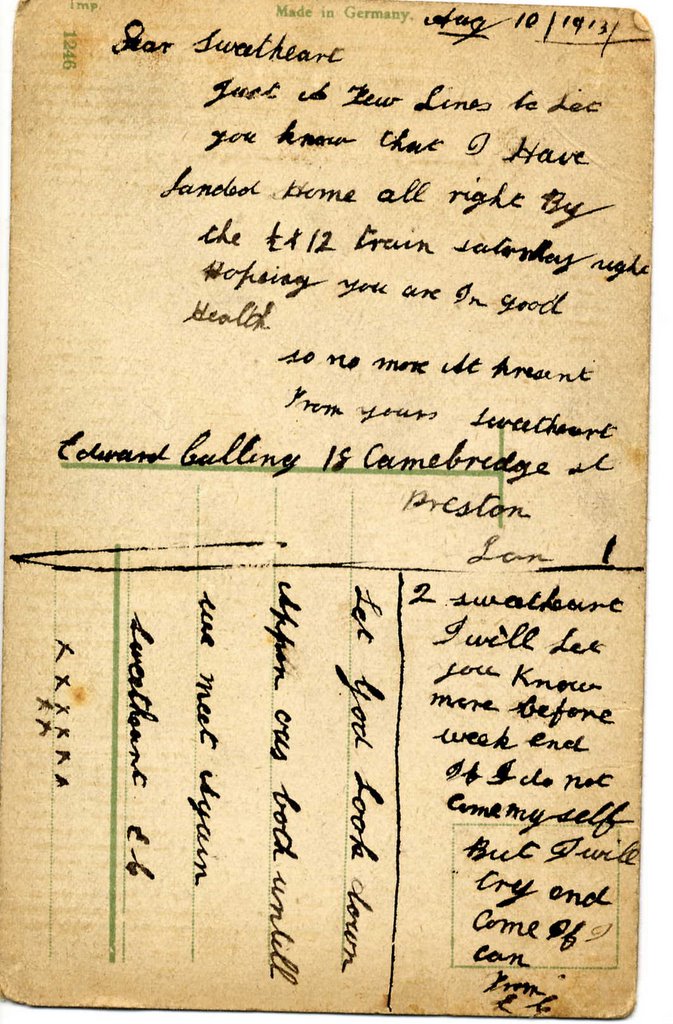 Imp.
Made in Germany.
1246
Aug 10/1913/
Dear Sweetheart
Just A Few Lines to Let
you know that I Have
Landed Home all right By
the 12 train saturday night
Hopeing you are In good
Health
so no more At present
From yours sweetheart
Edward Culling 18 Camebridge st
Preston
Lan 1
2 sweetheart
I will Let
you Know
more before
week end
If I do not
Come my self
But I will
try end
Come If I
can
From
E C
Let God Look down
Appon ous both untill
we meet Again
sweatheart E C
x x x x x x
x x